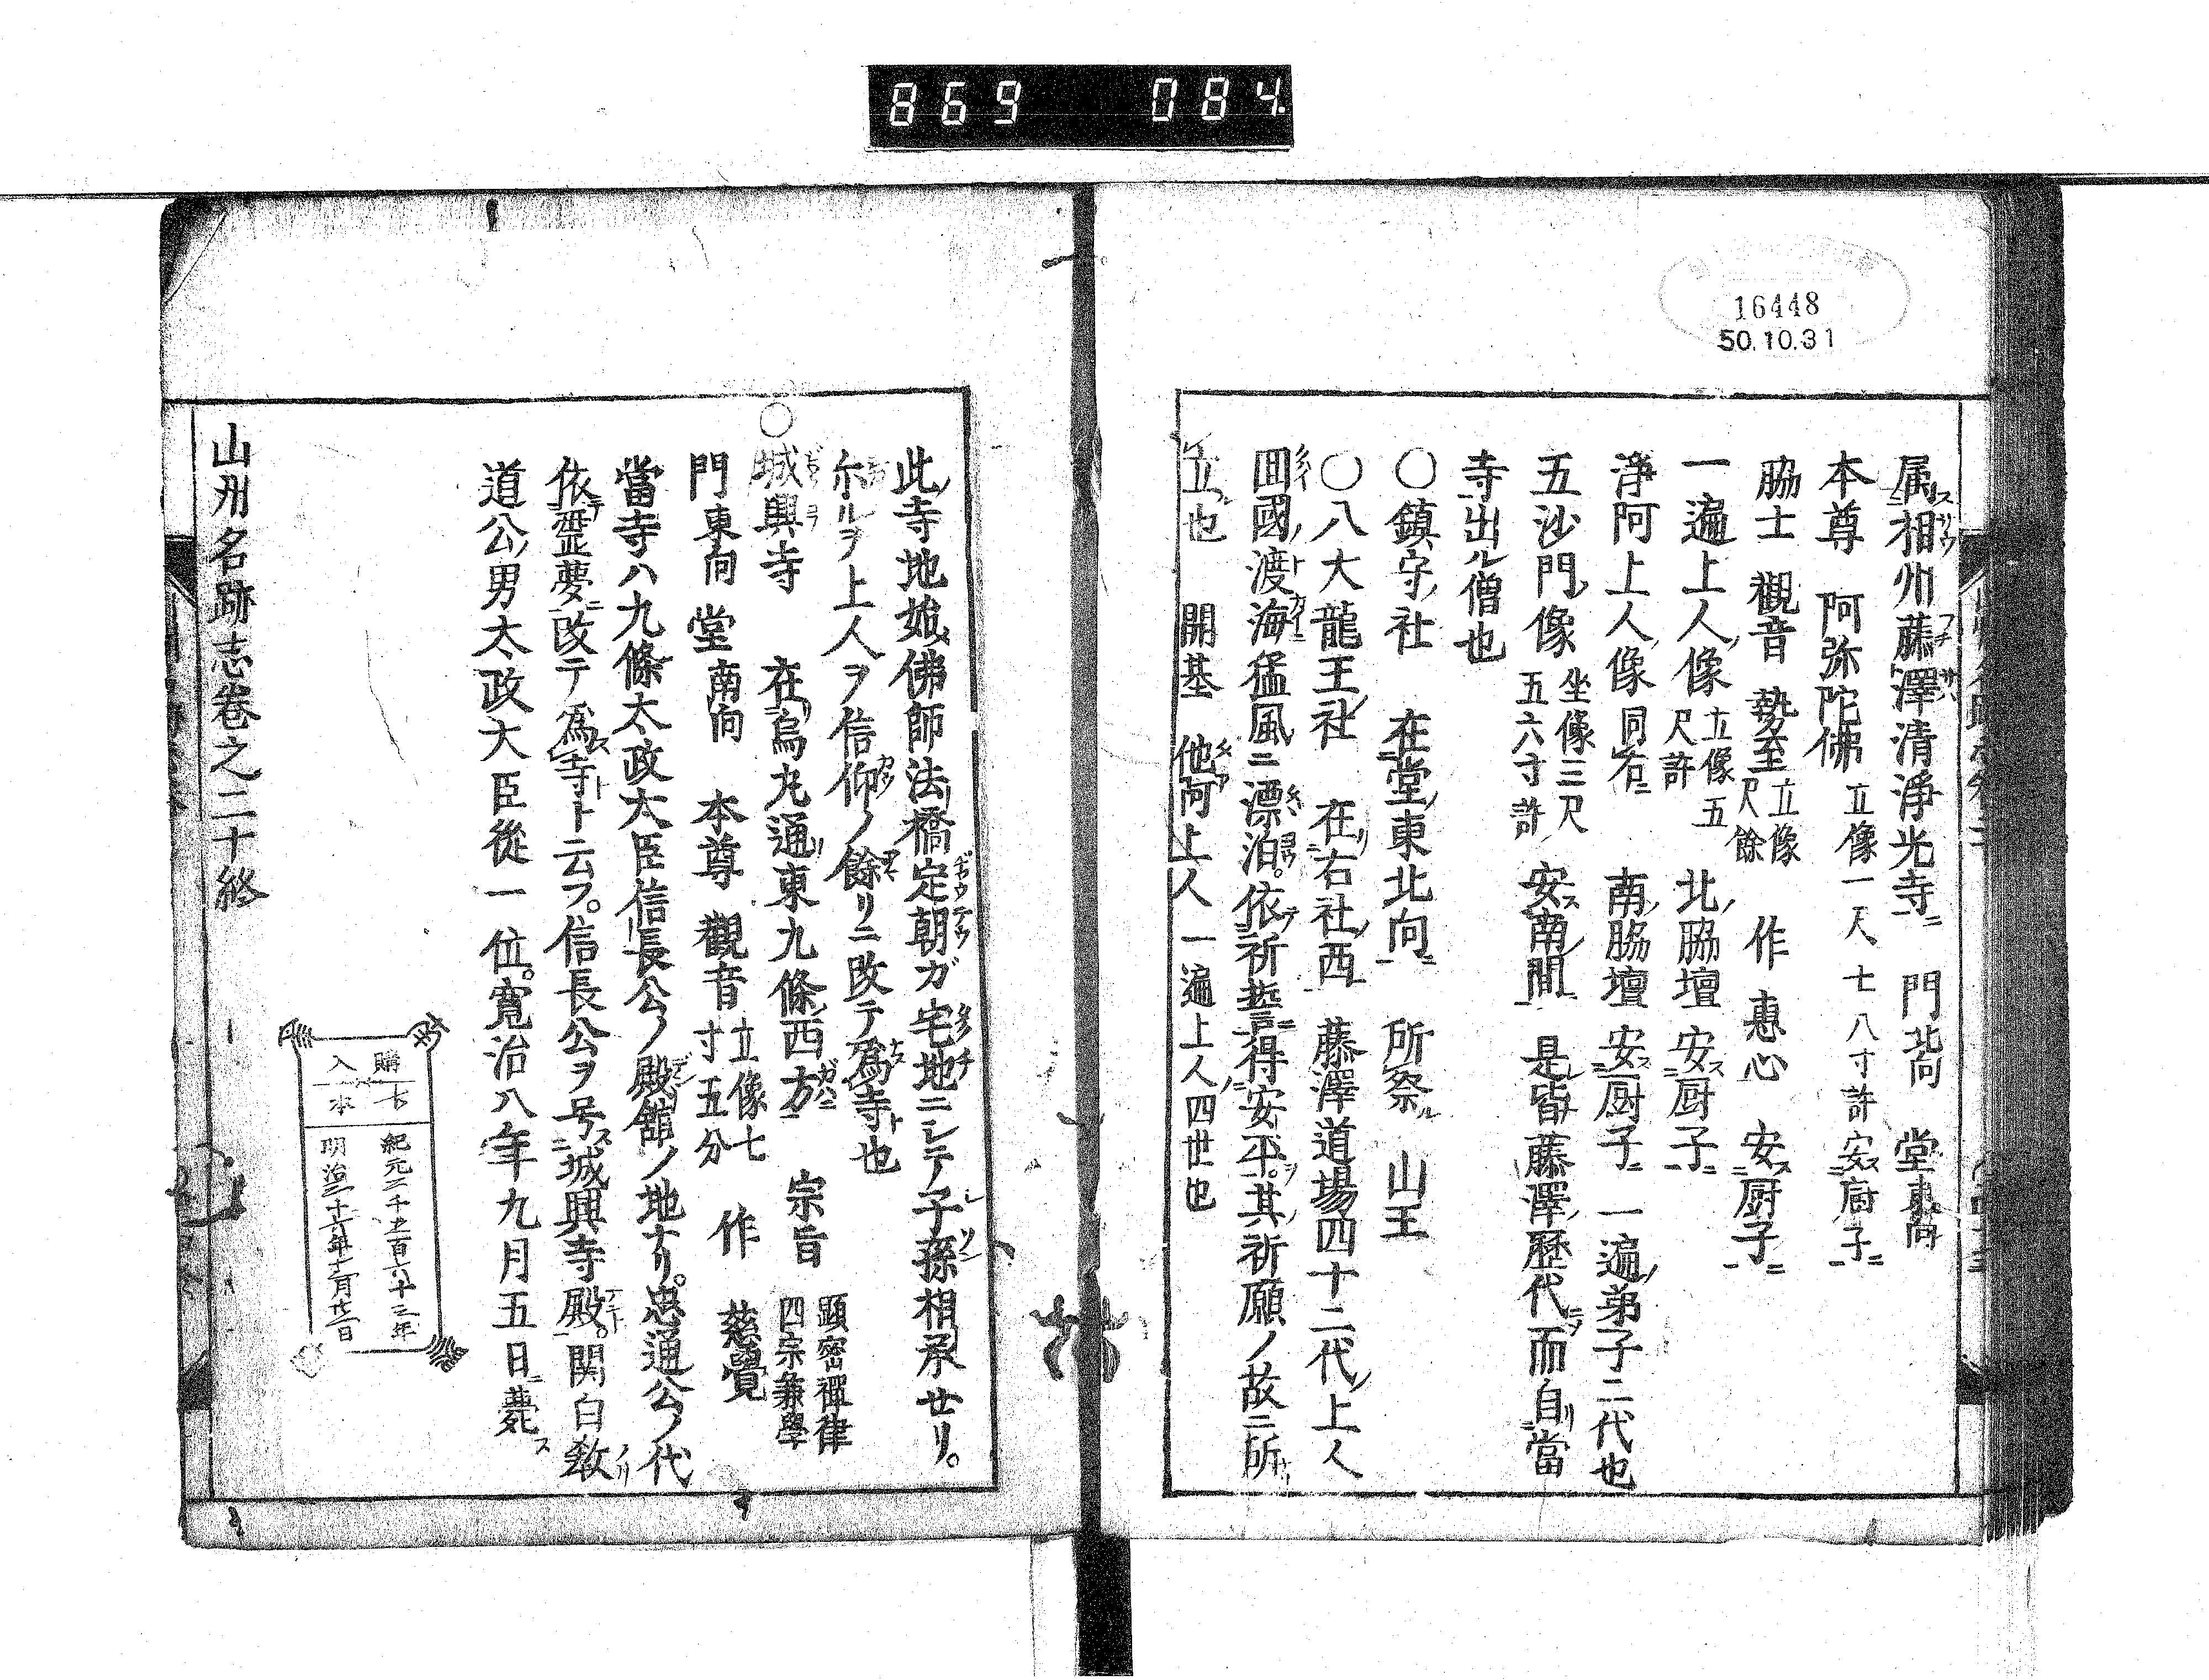 869 084
16448
50.10.31
属相州藤澤清淨光寺 門北向 堂東向
本尊 阿弥陀佛 立像一尺七八寸許安厨子
脇士 觀音 勢至 立像尺餘 作 惠心 安厨子
一遍上人像 立像五尺許 北脇壇 安厨子
淨阿上人像 同右 南脇壇 安厨子 一遍弟子二代也
五沙門像 坐像三尺五六寸許 安南間 是皆藤澤歷代而自當
寺出ル僧也
○鎮守社 在堂東北向 所祭 山王
○八大龍王社 在右社西 藤澤道場四十二代上人
囬國渡海猛風ニ漂泊。依祈誓得安平。其祈願ノ故ニ所
立也 開基 他阿上人 一遍上人四世也
此寺地始佛師法橋定朝ガ宅地ニシテ子孫相承セリ。
尓ルヲ上人ヲ信仰ノ餘リニ改テ爲寺也
○城興寺 在烏丸通東九條西方 宗旨 顕密禪律四宗兼學
門東向 堂南向 本尊 觀音 立像七寸五分 作 慈覺
當寺ハ九條太政大臣信長公ノ殿舘ノ地ナリ。忠通公ノ代
依霊夢改テ爲寺ト云フ。信長公ヲ号城興寺殿。関白敎
道公男太政大臣從一位。寛治八年九月五日薨
山州名跡志卷之二十終
購入
本
紀元二千五百六十三年
明治三十六年十二月廿二日